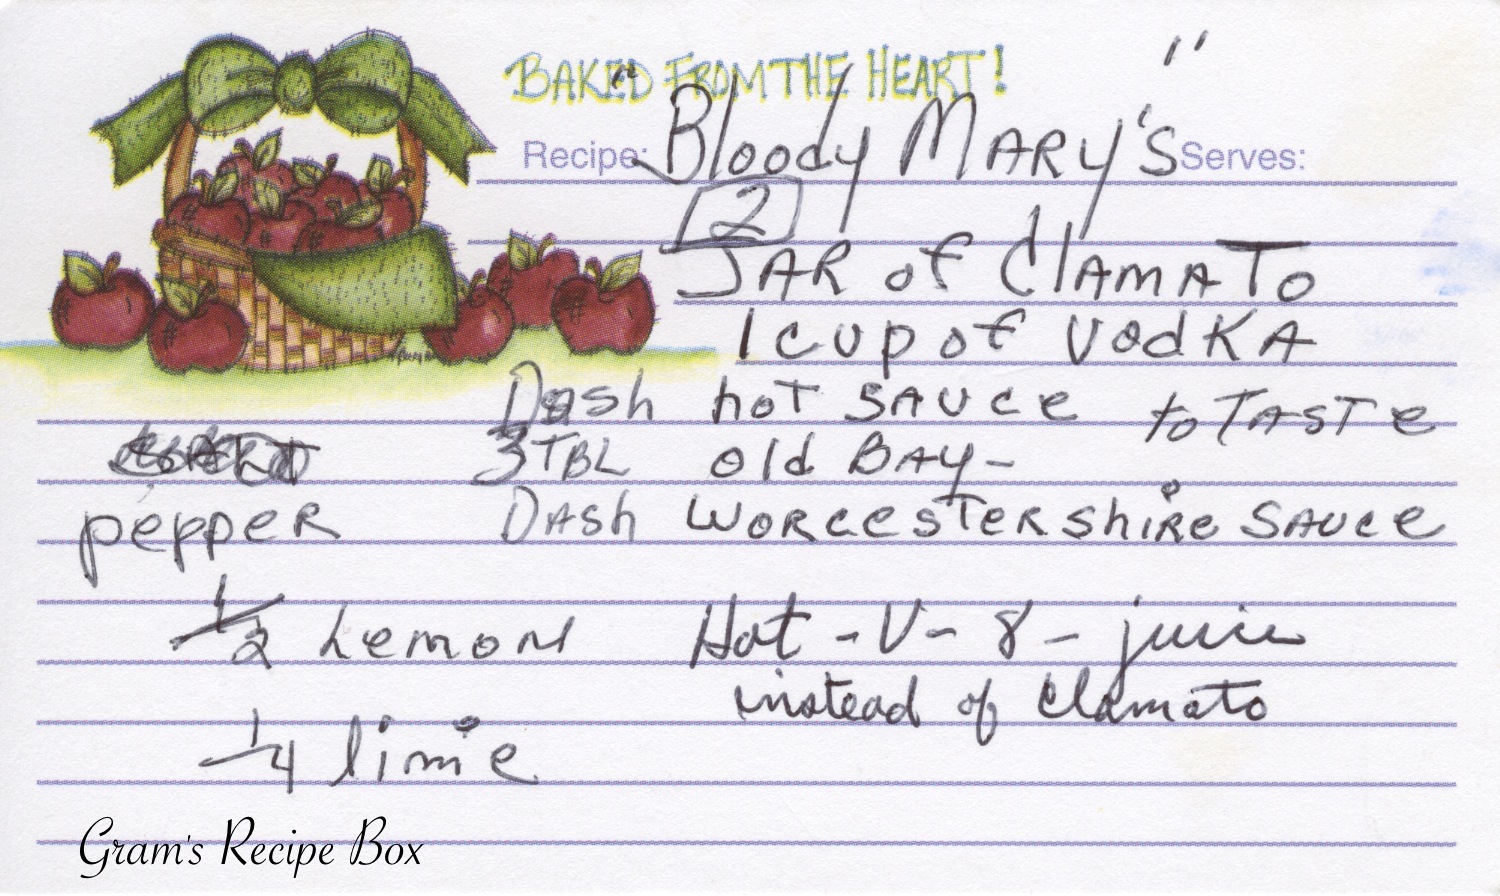 BAKED FROM THE HEART!
Recipe: "Bloody MARY'S" Serves:
2
JAR of ClAMATo
1 cup of VodKA
Dash hot SAUCe to TASTe
3 TBL old BAY-
pepper DASh WORCesTeRshiRe SAUCe
1/2 Lemon Hot - V - 8 - juice
instead of Clamato
1/4 lime
Gram's Recipe Box